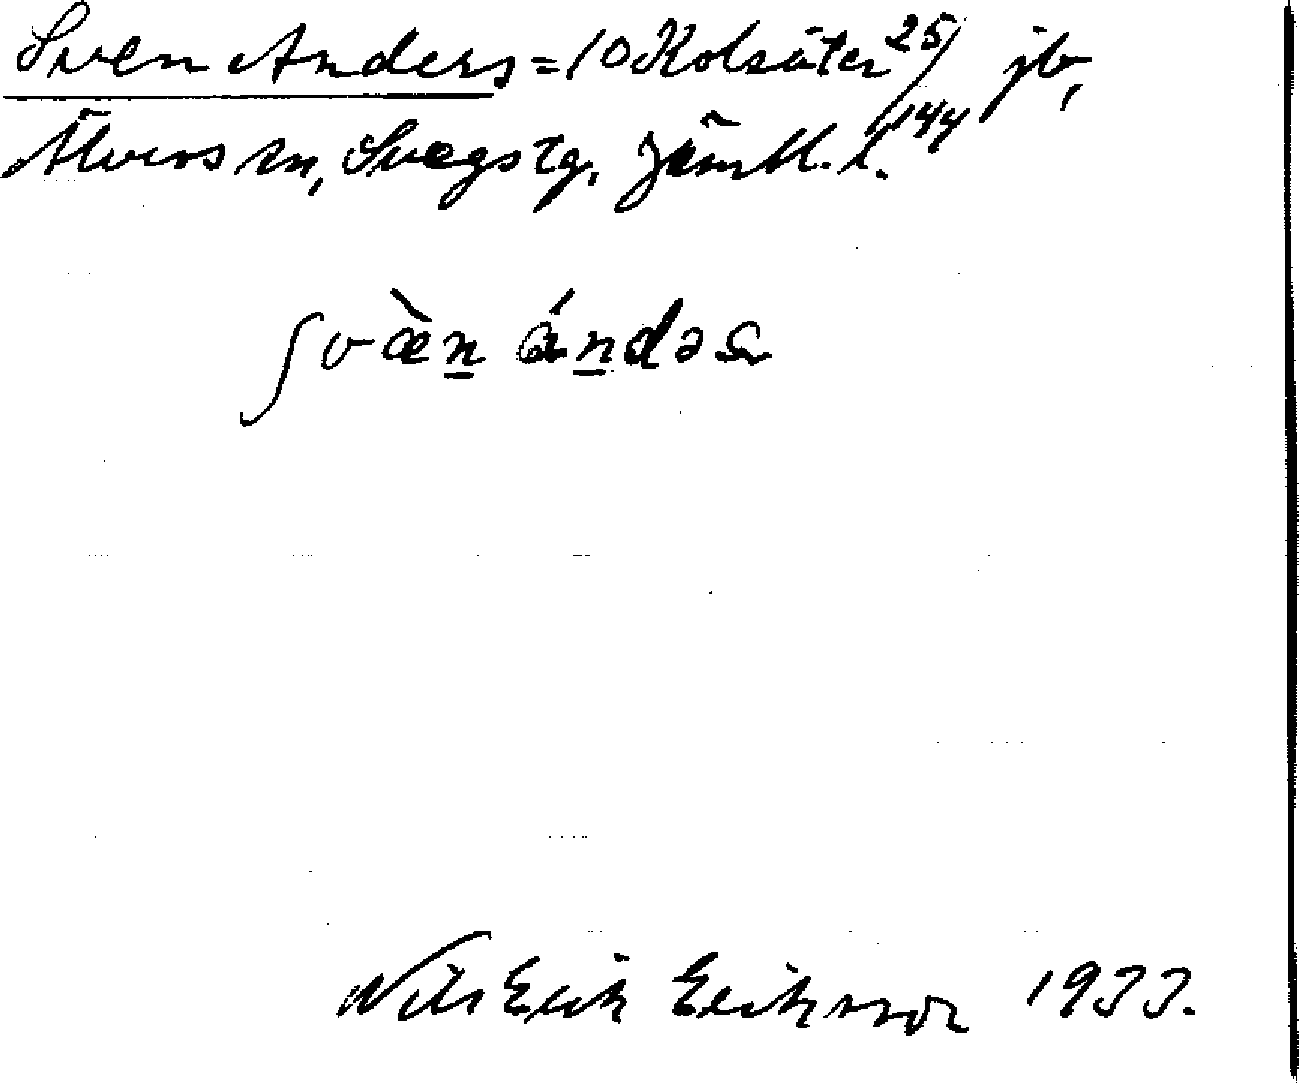 Sven Anders = 10 Kolsäter 25/144 jb,
Älvros sn, Svegs tg. Jämtl. l.
ʃvæ̀n ándəs
Nils Erik Eriksson 1933.